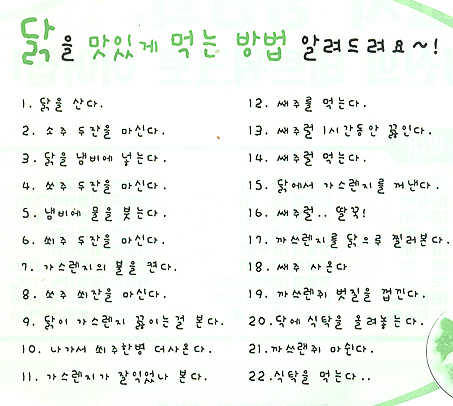 닭을 맛있게 먹는 방법 알려드려요~!
1. 닭을 산다.
2. 소주 두잔을 마신다.
3. 닭을 냄비에 넣는다.
4. 쏘주 두잔을 마신다.
5. 냄비에 물을 붓는다.
6. 쐬주 두잔을 마신다.
7. 가스렌지의 불을 켠다.
8. 쏘주 쇠잔을 마신다.
9. 닭이 가스렌지 끓이는걸 본다.
10. 나가서 쐬주한병 더사온다.
11. 가스렌지가 잘익었나 본다.
12. 쌔주를 먹는다.
13. 쌔주럴 1시간동안 끓인다.
14. 쌔주럴 먹는다.
15. 닭에서 가스렌지를 꺼낸다.
16. 쌔주럴.. 딸꾹!
17. 까쓰렌지를 닭으루 찔러본다.
18. 쌔주 사온다
19. 까쓰렌쥐 벗질을 껍긴다.
20. 닭에 식탁을 올려놓는다.
21. 까쓰랜쥐 마쉰다.
22. 식탁을 먹는다..